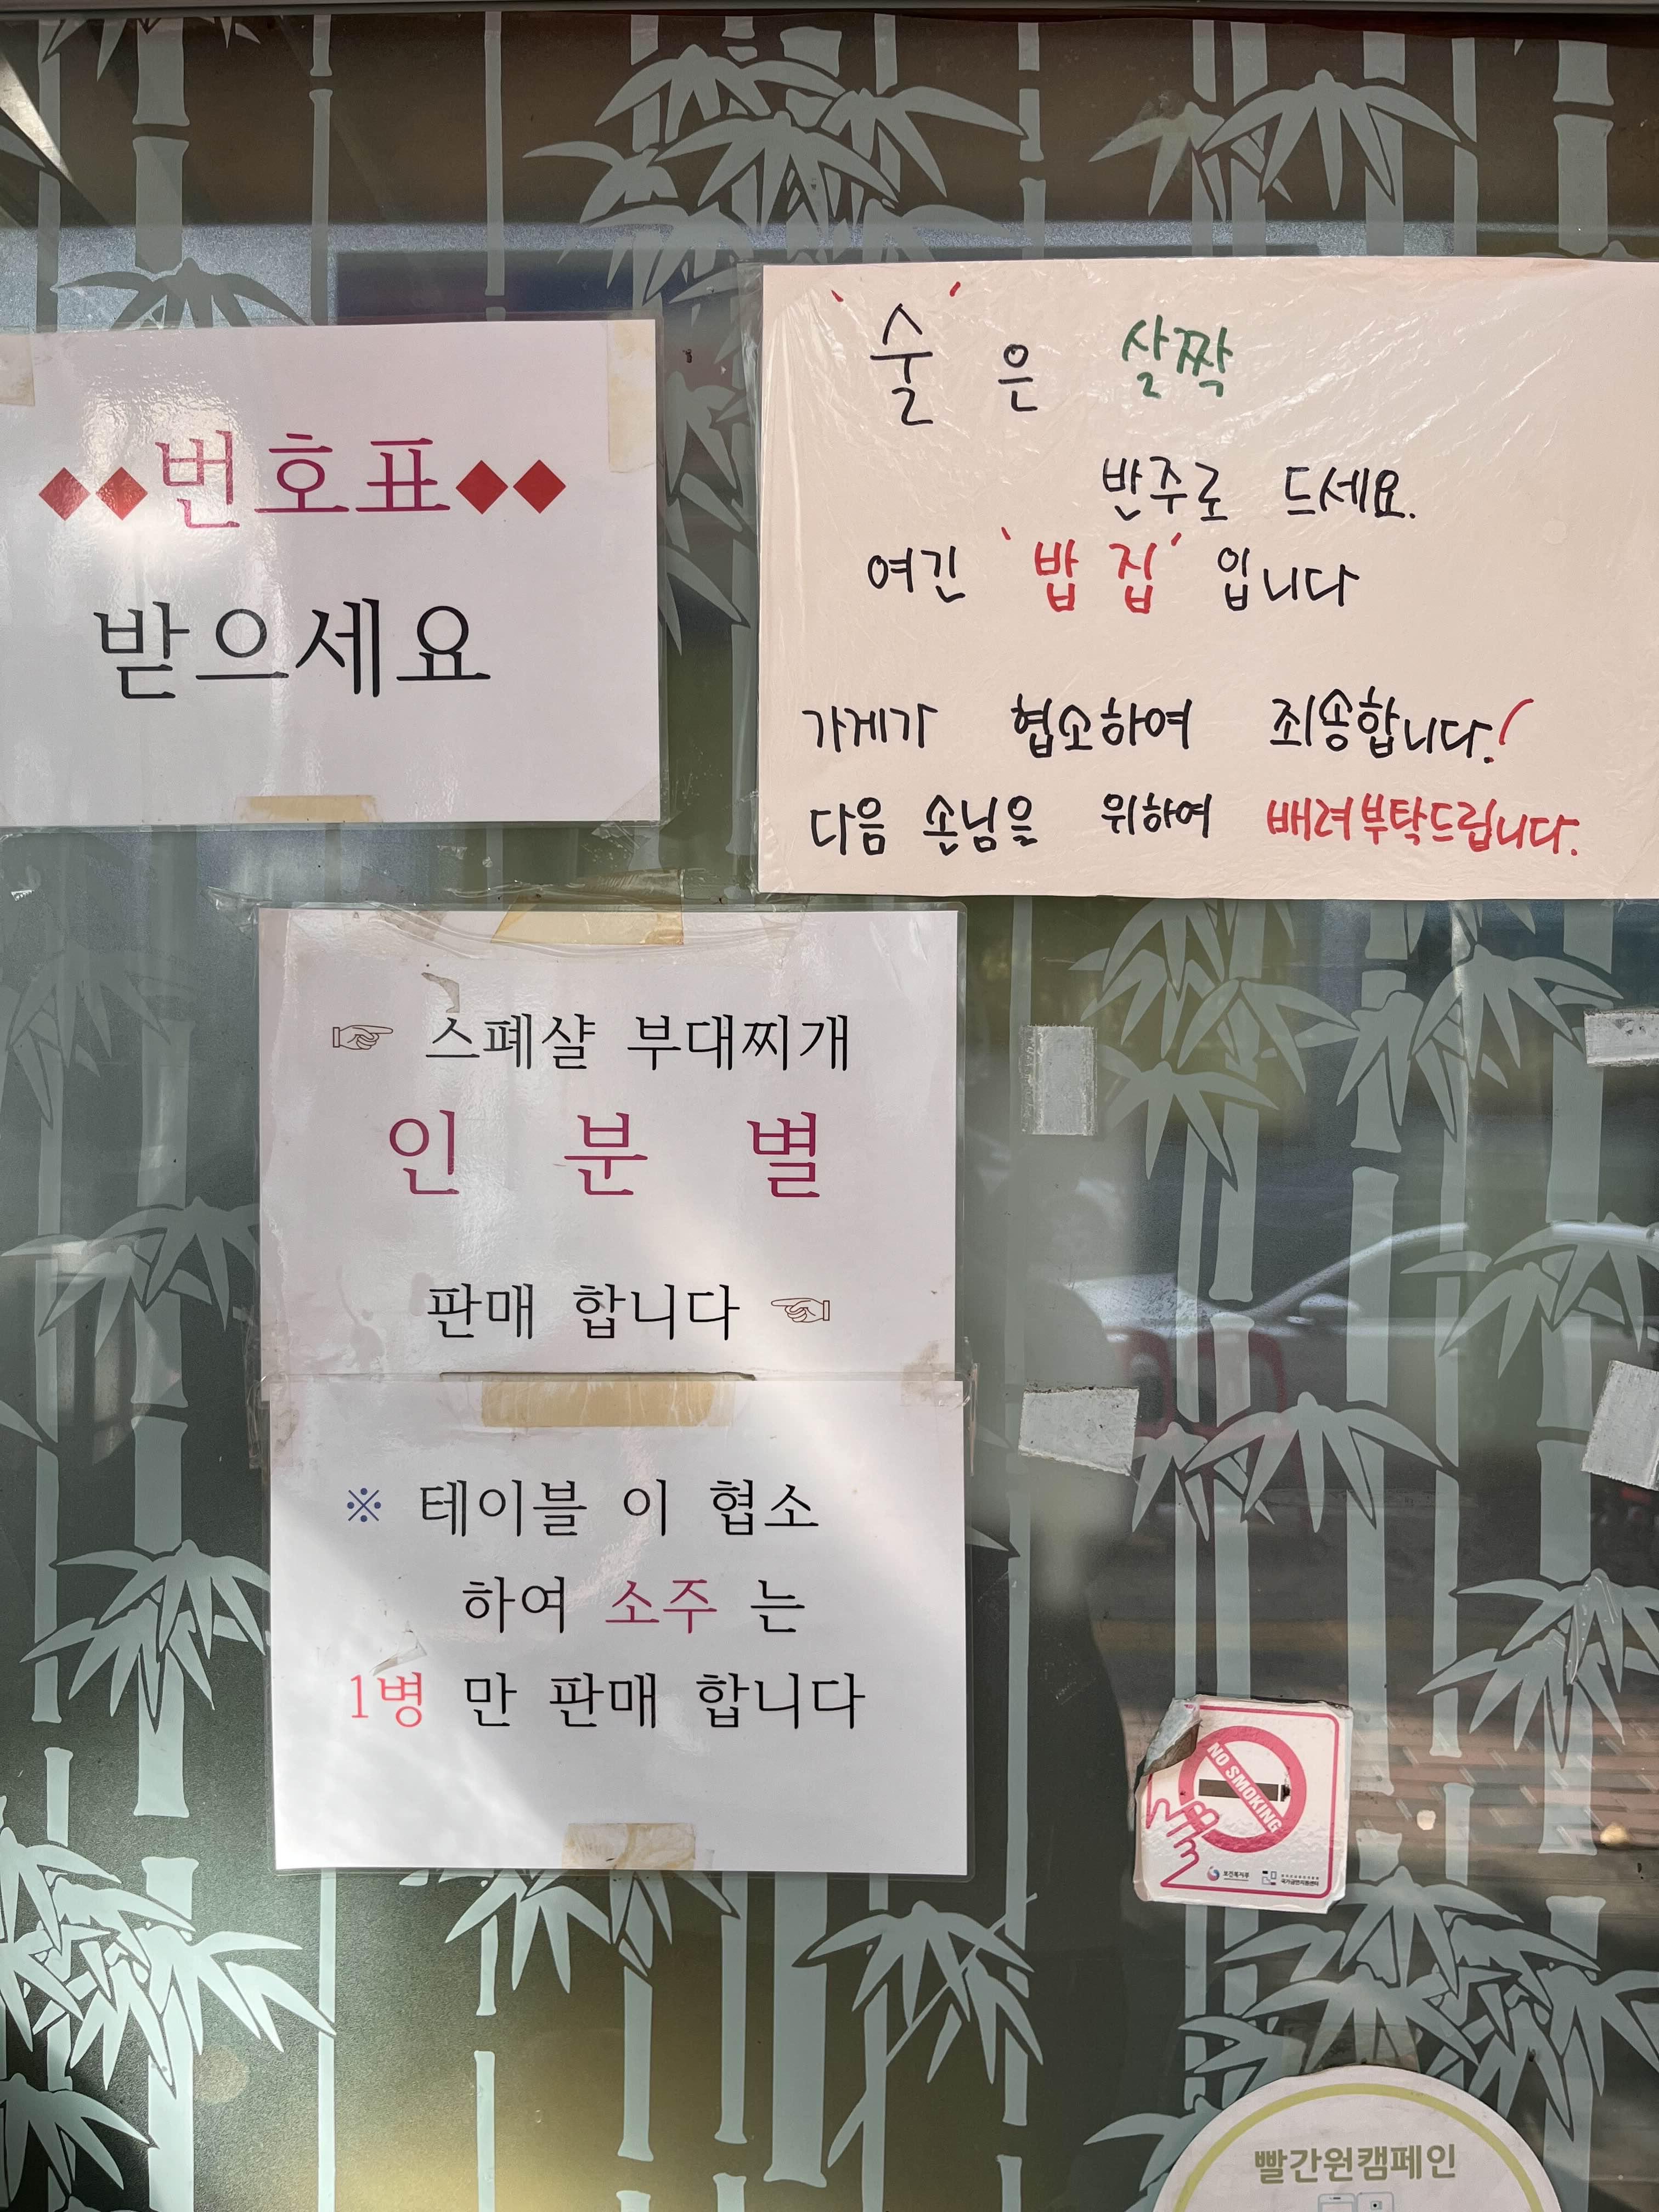 ◆◆번호표◆◆
받으세요
'술'은 살짝
반주로 드세요.
여긴 '밥집' 입니다
가게가 협소하여 죄송합니다!
다음 손님을 위하여 배려부탁드립니다.
☞ 스폐샬 부대찌개
인 분 별
판매 합니다 ☜
※ 테이블 이 협소
하여 소주 는
1병 만 판매 합니다
NO SMOKING
보건복지부
국가금연지원센터
빨간원캠페인